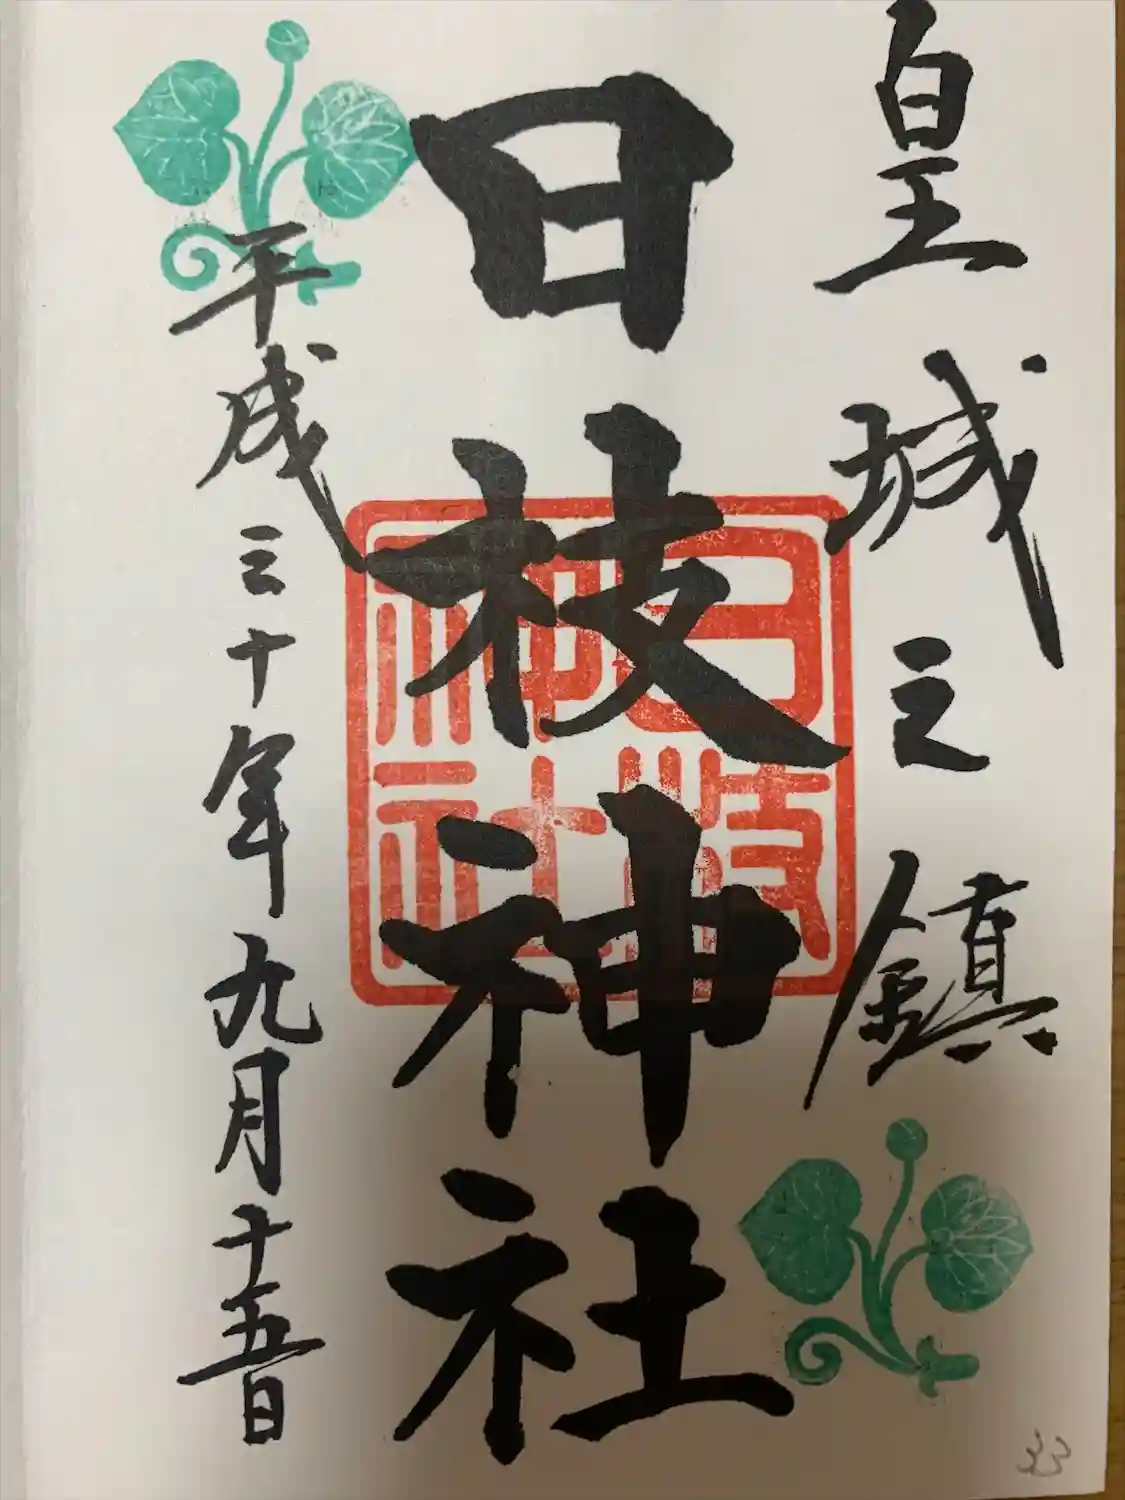 皇城之鎮
日枝神社
日枝神社
平成三十年九月十五日